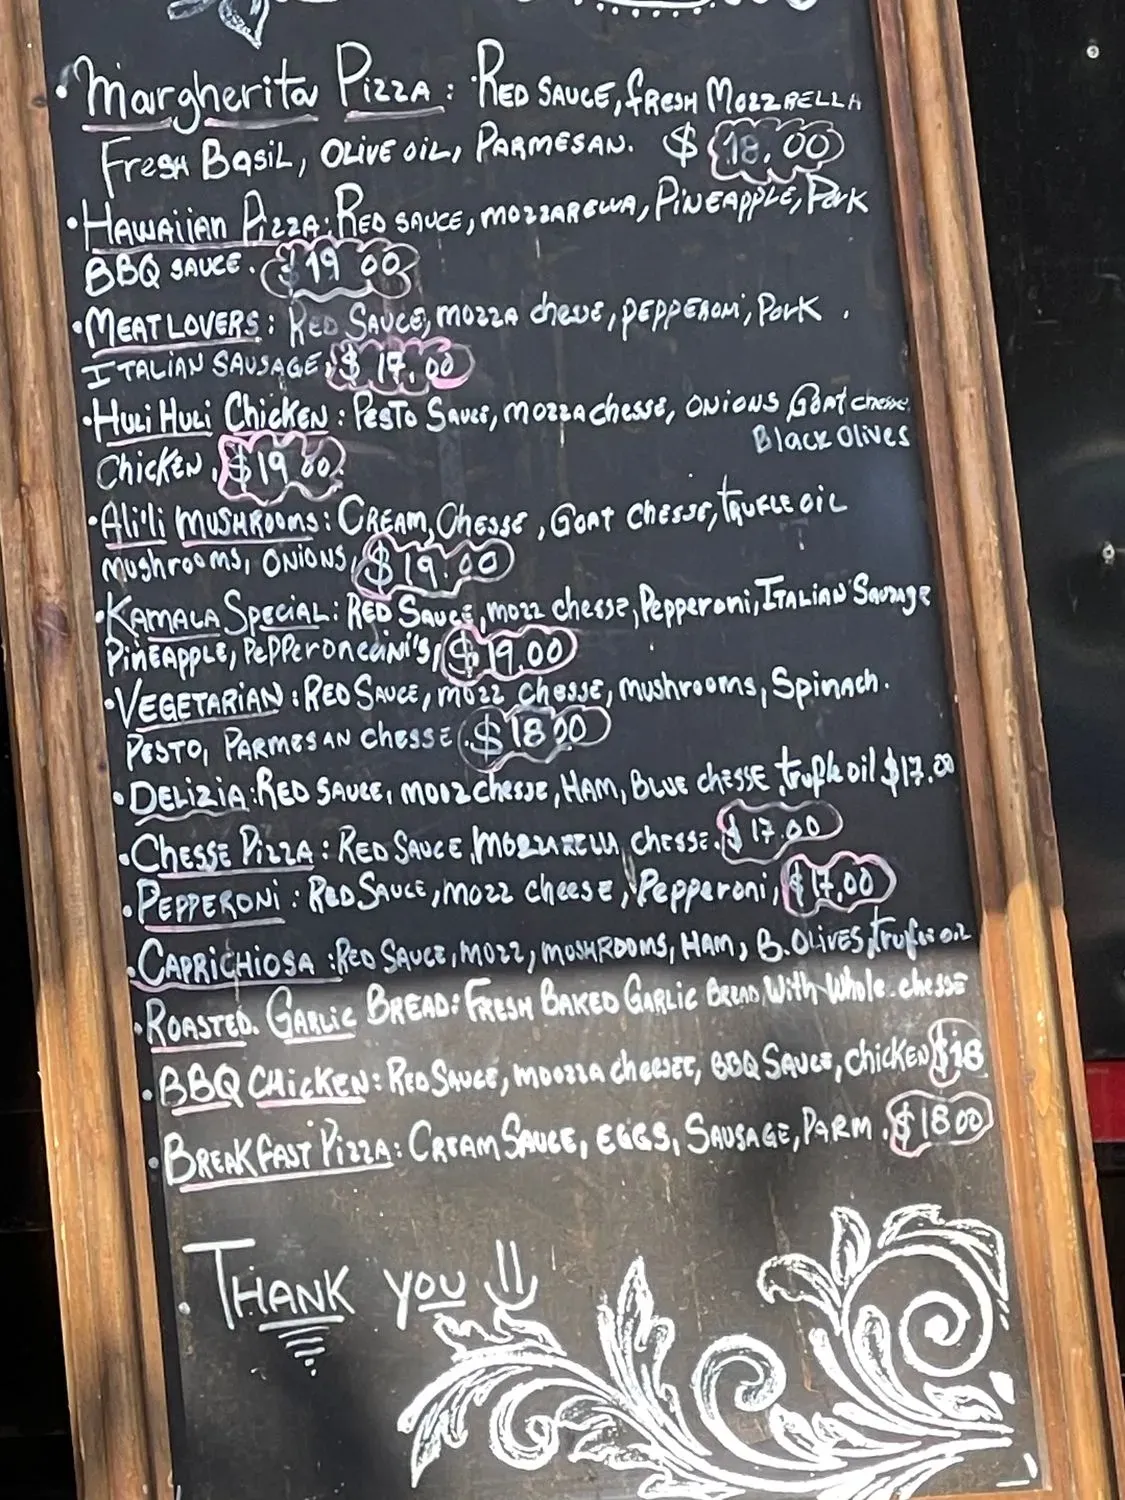 • Margherita Pizza : Red Sauce, fresh Mozzrella
Fresh Basil, Olive oil, Parmesan. $ 18.00
• Hawaiian Pizza : Red sauce, mozzarella, Pineapple, Pork
BBQ sauce. $19 00
• Meat Lovers : Red Sauce, mozza cheese, pepperoni, Pork .
Italian Sausage, $ 17.00
• Huli Huli Chicken : Pesto Sauce, mozza chesse, onions Goat chesse,
Black Olives
Chicken, $19 00
• Ali'li Mushrooms : Cream, Chesse, Goat chesse, trufle oil
Mushrooms, onions, $ 19.00
• Kamala Special : Red Sauce, mozz chesse, Pepperoni, Italian Sausage
Pineapple, Pepperoncini's, $ 19.00
• Vegetarian : Red Sauce, mozz chesse, mushrooms, Spinach.
Pesto, Parmesan chesse. $ 18 00
• Delizia : Red sauce, mozz chesse, Ham, Blue chesse, trufle oil $17.00
• Chesse Pizza : Red Sauce, Mozzarella chesse. $ 17.00
• Pepperoni : Red Sauce, mozz cheese, Pepperoni, $17.00
• Caprichiosa : Red Sauce, mozz, mushrooms, Ham, B. Olives, trufle oil
• Roasted. Garlic Bread : Fresh Baked Garlic Bread With Whole chesse
• BBQ Chicken : Red Sauce, moozza cheeset, BBQ Sauce, chicken $18
• Breakfast Pizza : Cream Sauce, eggs, Sausage, Parm. $18 00
• Thank you